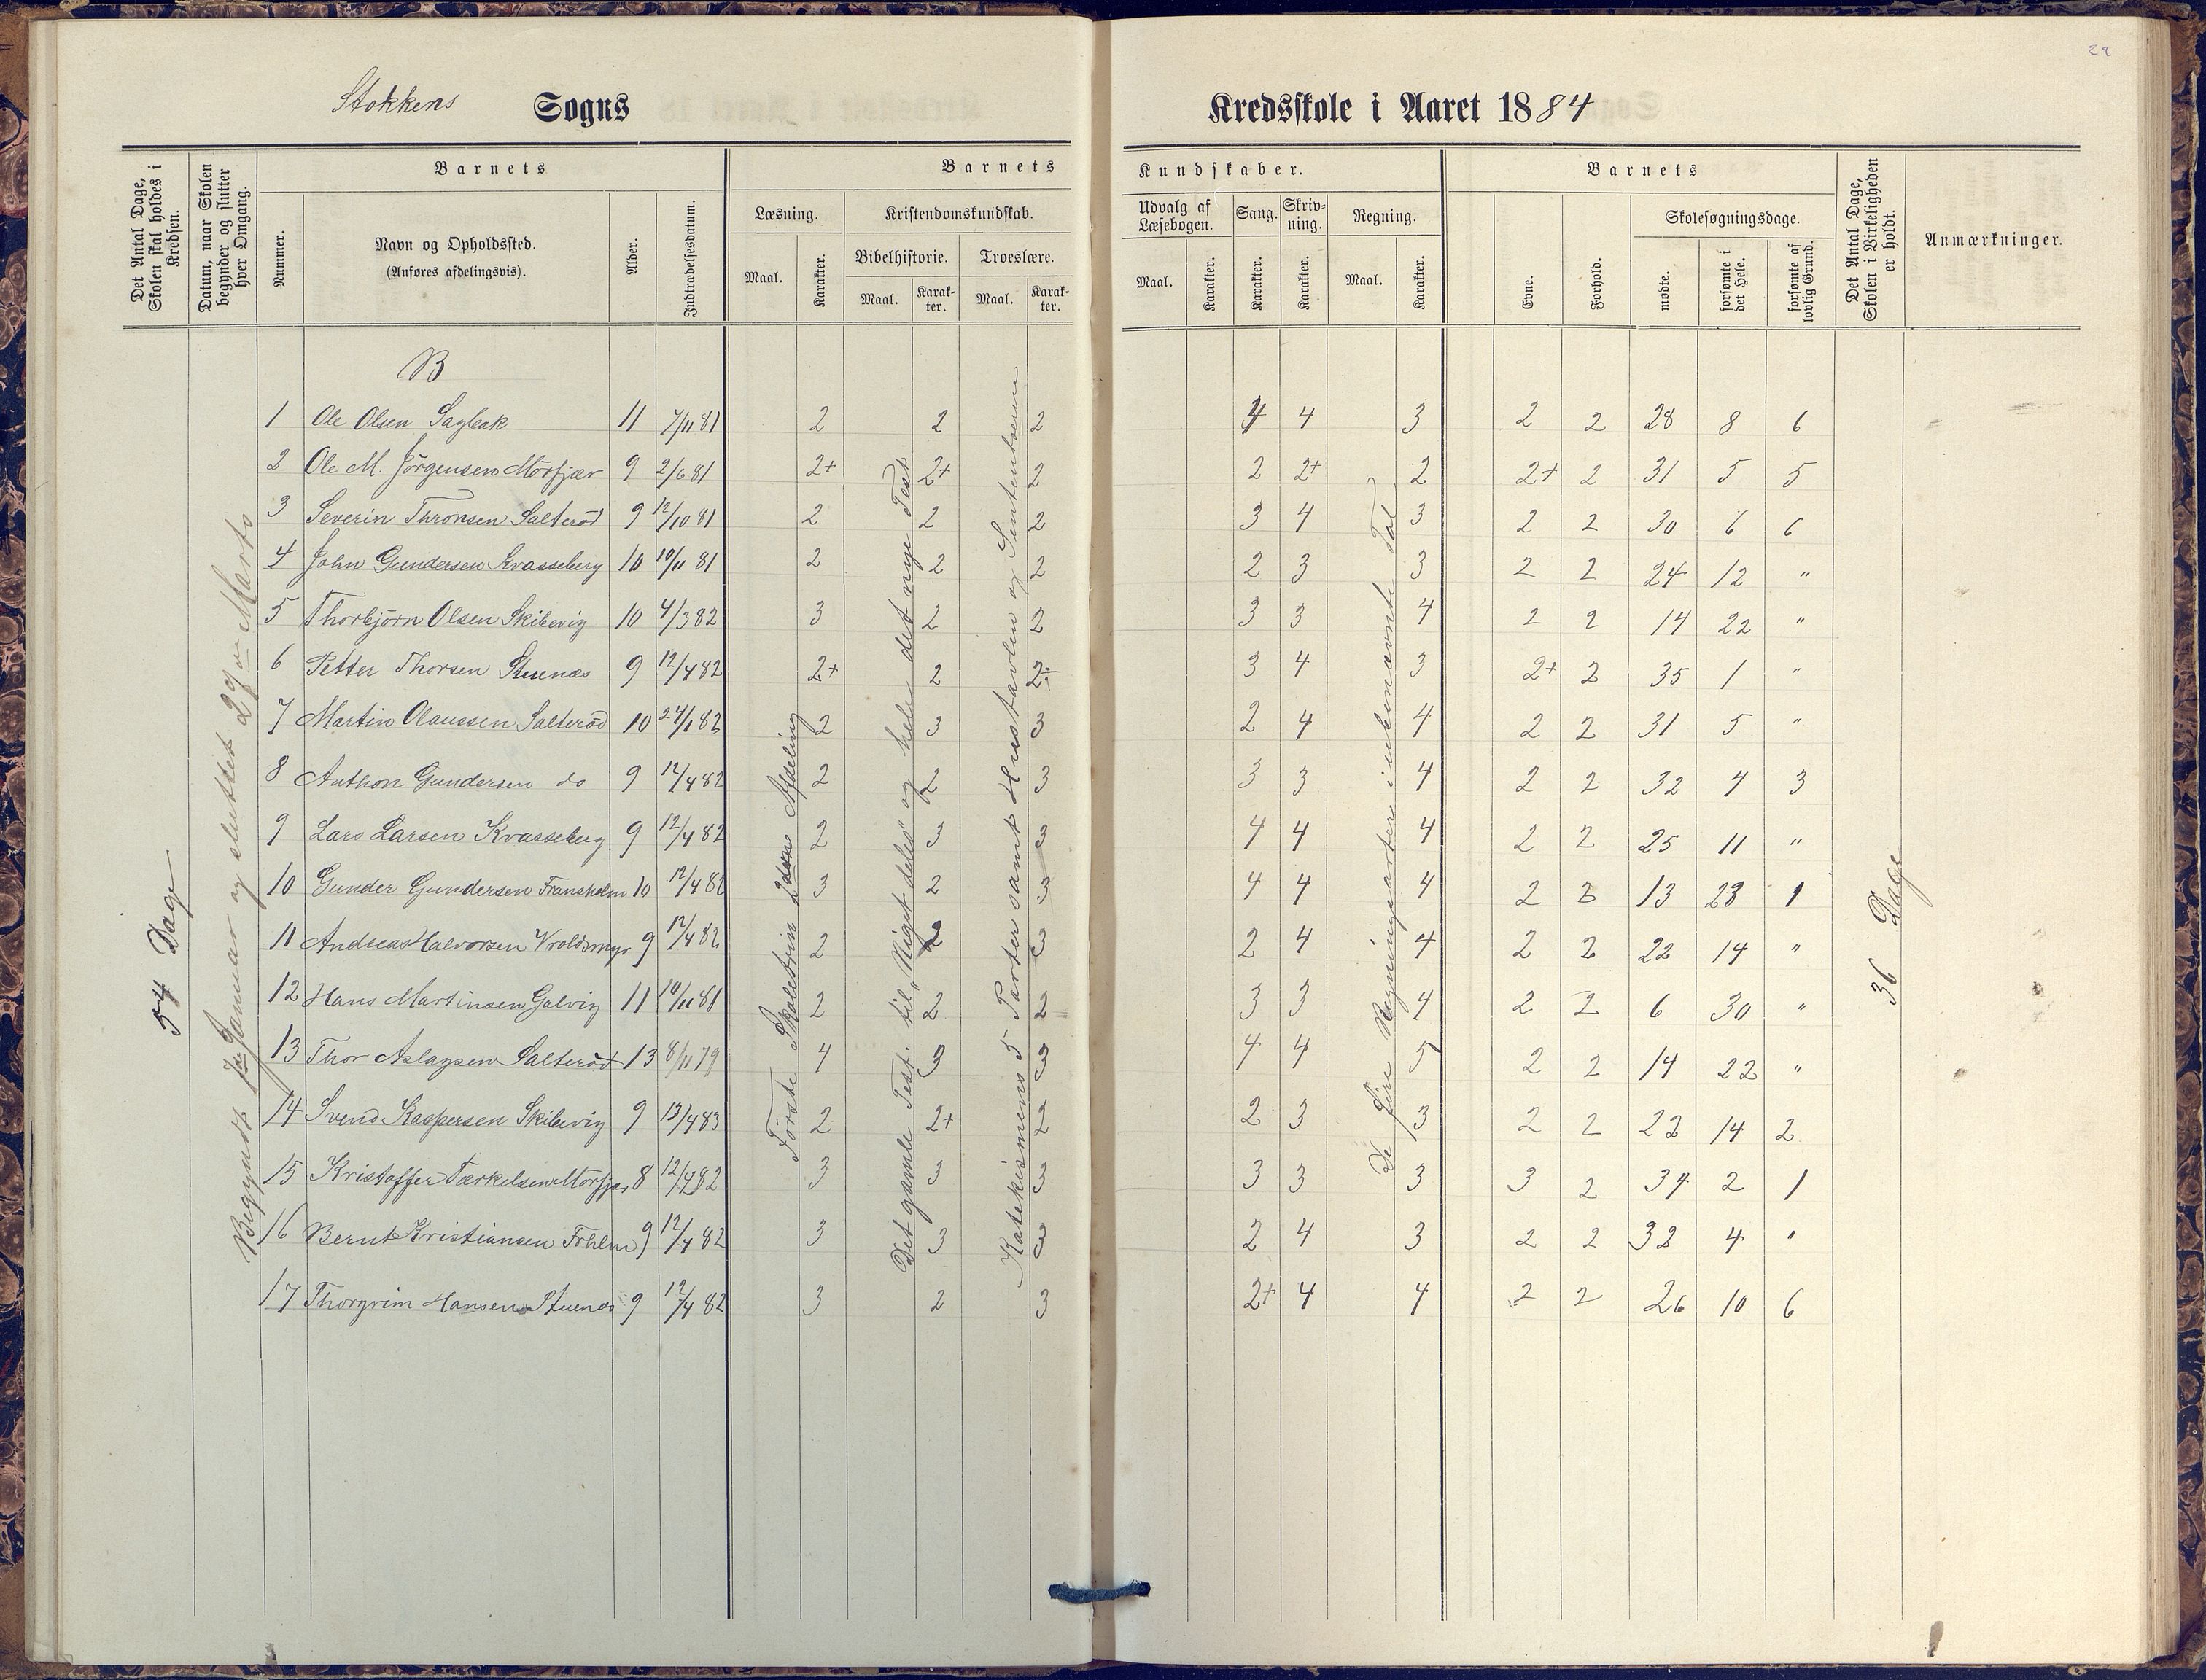 22
Stokkens Sogns Kredsskole i Aaret 1884
Det Antal Dage, Skolen skal holdes i Kredsen.
Datum, naar Skolen begynder og slutter hver Omgang.
Barnets
Nummer.
Navn og Opholdssted.
(Anføres afdelingsvis).
Alder.
Indtrædelsesdatum.
Barnets Kundskaber.
Læsning. Kristendomskundskab. Udvalg af Læsebogen. Sang. Skrivning. Regning.
Bibelhistorie. Troeslære.
Maal. Karakter. Maal. Karakter. Maal. Karakter. Maal. Karakter. Karakter. Karakter. Maal. Karakter.
Barnets
Evne. Forhold. Skolesøgningsdage.
mødte. forsømte i det Hele. forsømte af lovlig Grund.
Det Antal Dage, Skolen i Virkeligheden er holdt.
Anmærkninger.
54 Dage
Begyndt 7de Januar og sluttet 29de Marts
Første Skoletrin 2den Afdeling
Det gamle Test. til „Riget deles" og hele det nye Test
Katekismens 5 Parter samt Hustavlen og Sententserne
De fire Regningsarter i ubenævnte Tal
36 Dage
B
1 Ole Olsen Sagbak 11 7/11 81 2 2 2 4 4 3 2 2 28 8 6
2 Ole M. Jörgensen Mörfjær 9 2/6 81 2+ 2+ 2 2 2+ 2 2+ 2 31 5 5
3 Severin Thronsen Salteröd 9 12/10 81 2 2 2 3 4 3 2 2 30 6 6
4 John Gundersen Kvasseberg 10 10/11 81 2 2 2 2 3 3 2 2 24 12 "
5 Thorbjörn Olsen Skibevig 10 4/3 82 3 2 2 3 3 4 2 2 14 22 "
6 Petter Thorsen Stuenæs 9 12/4 82 2+ 2 2÷ 3 4 3 2+ 2 35 1 "
7 Martin Olaussen Salteröd 10 24/1 82 2 3 3 2 4 4 2 2 31 5 "
8 Anthon Gundersen do 9 12/4 82 2 2 3 3 3 4 2 2 32 4 3
9 Lars Larsen Kvasseberg 9 12/4 82 2 3 3 4 4 4 2 2 25 11 "
10 Gunder Gundersen Fransholm 10 12/4 82 3 2 3 4 4 4 2 3 13 23 1
11 Andreas Halvorsen Vroldsmyr 9 12/4 82 2 2 3 2 4 4 2 2 22 14 "
12 Hans Martinsen Galvig 11 10/11 81 2 2 2 3 3 4 2 2 6 30 "
13 Thor Aslagsen Salteröd 13 8/11 79 4 3 3 4 4 5 2 2 14 22 "
14 Svend Kaspersen Skibevig 9 13/4 83 2 2+ 2 2 3 3 2 2 22 14 2
15 Kristoffer Tærkelsen Mörfjær 8 12/4 82 3 3 3 3 3 3 3 2 34 2 1
16 Bernt Kristiansen Frhlm 9 12/4 82 3 3 3 2 4 3 2 2 32 4 "
17 Thorgrim Hansen Stuenæs 9 12/4 82 3 2 3 2+ 4 4 2 2 26 10 6